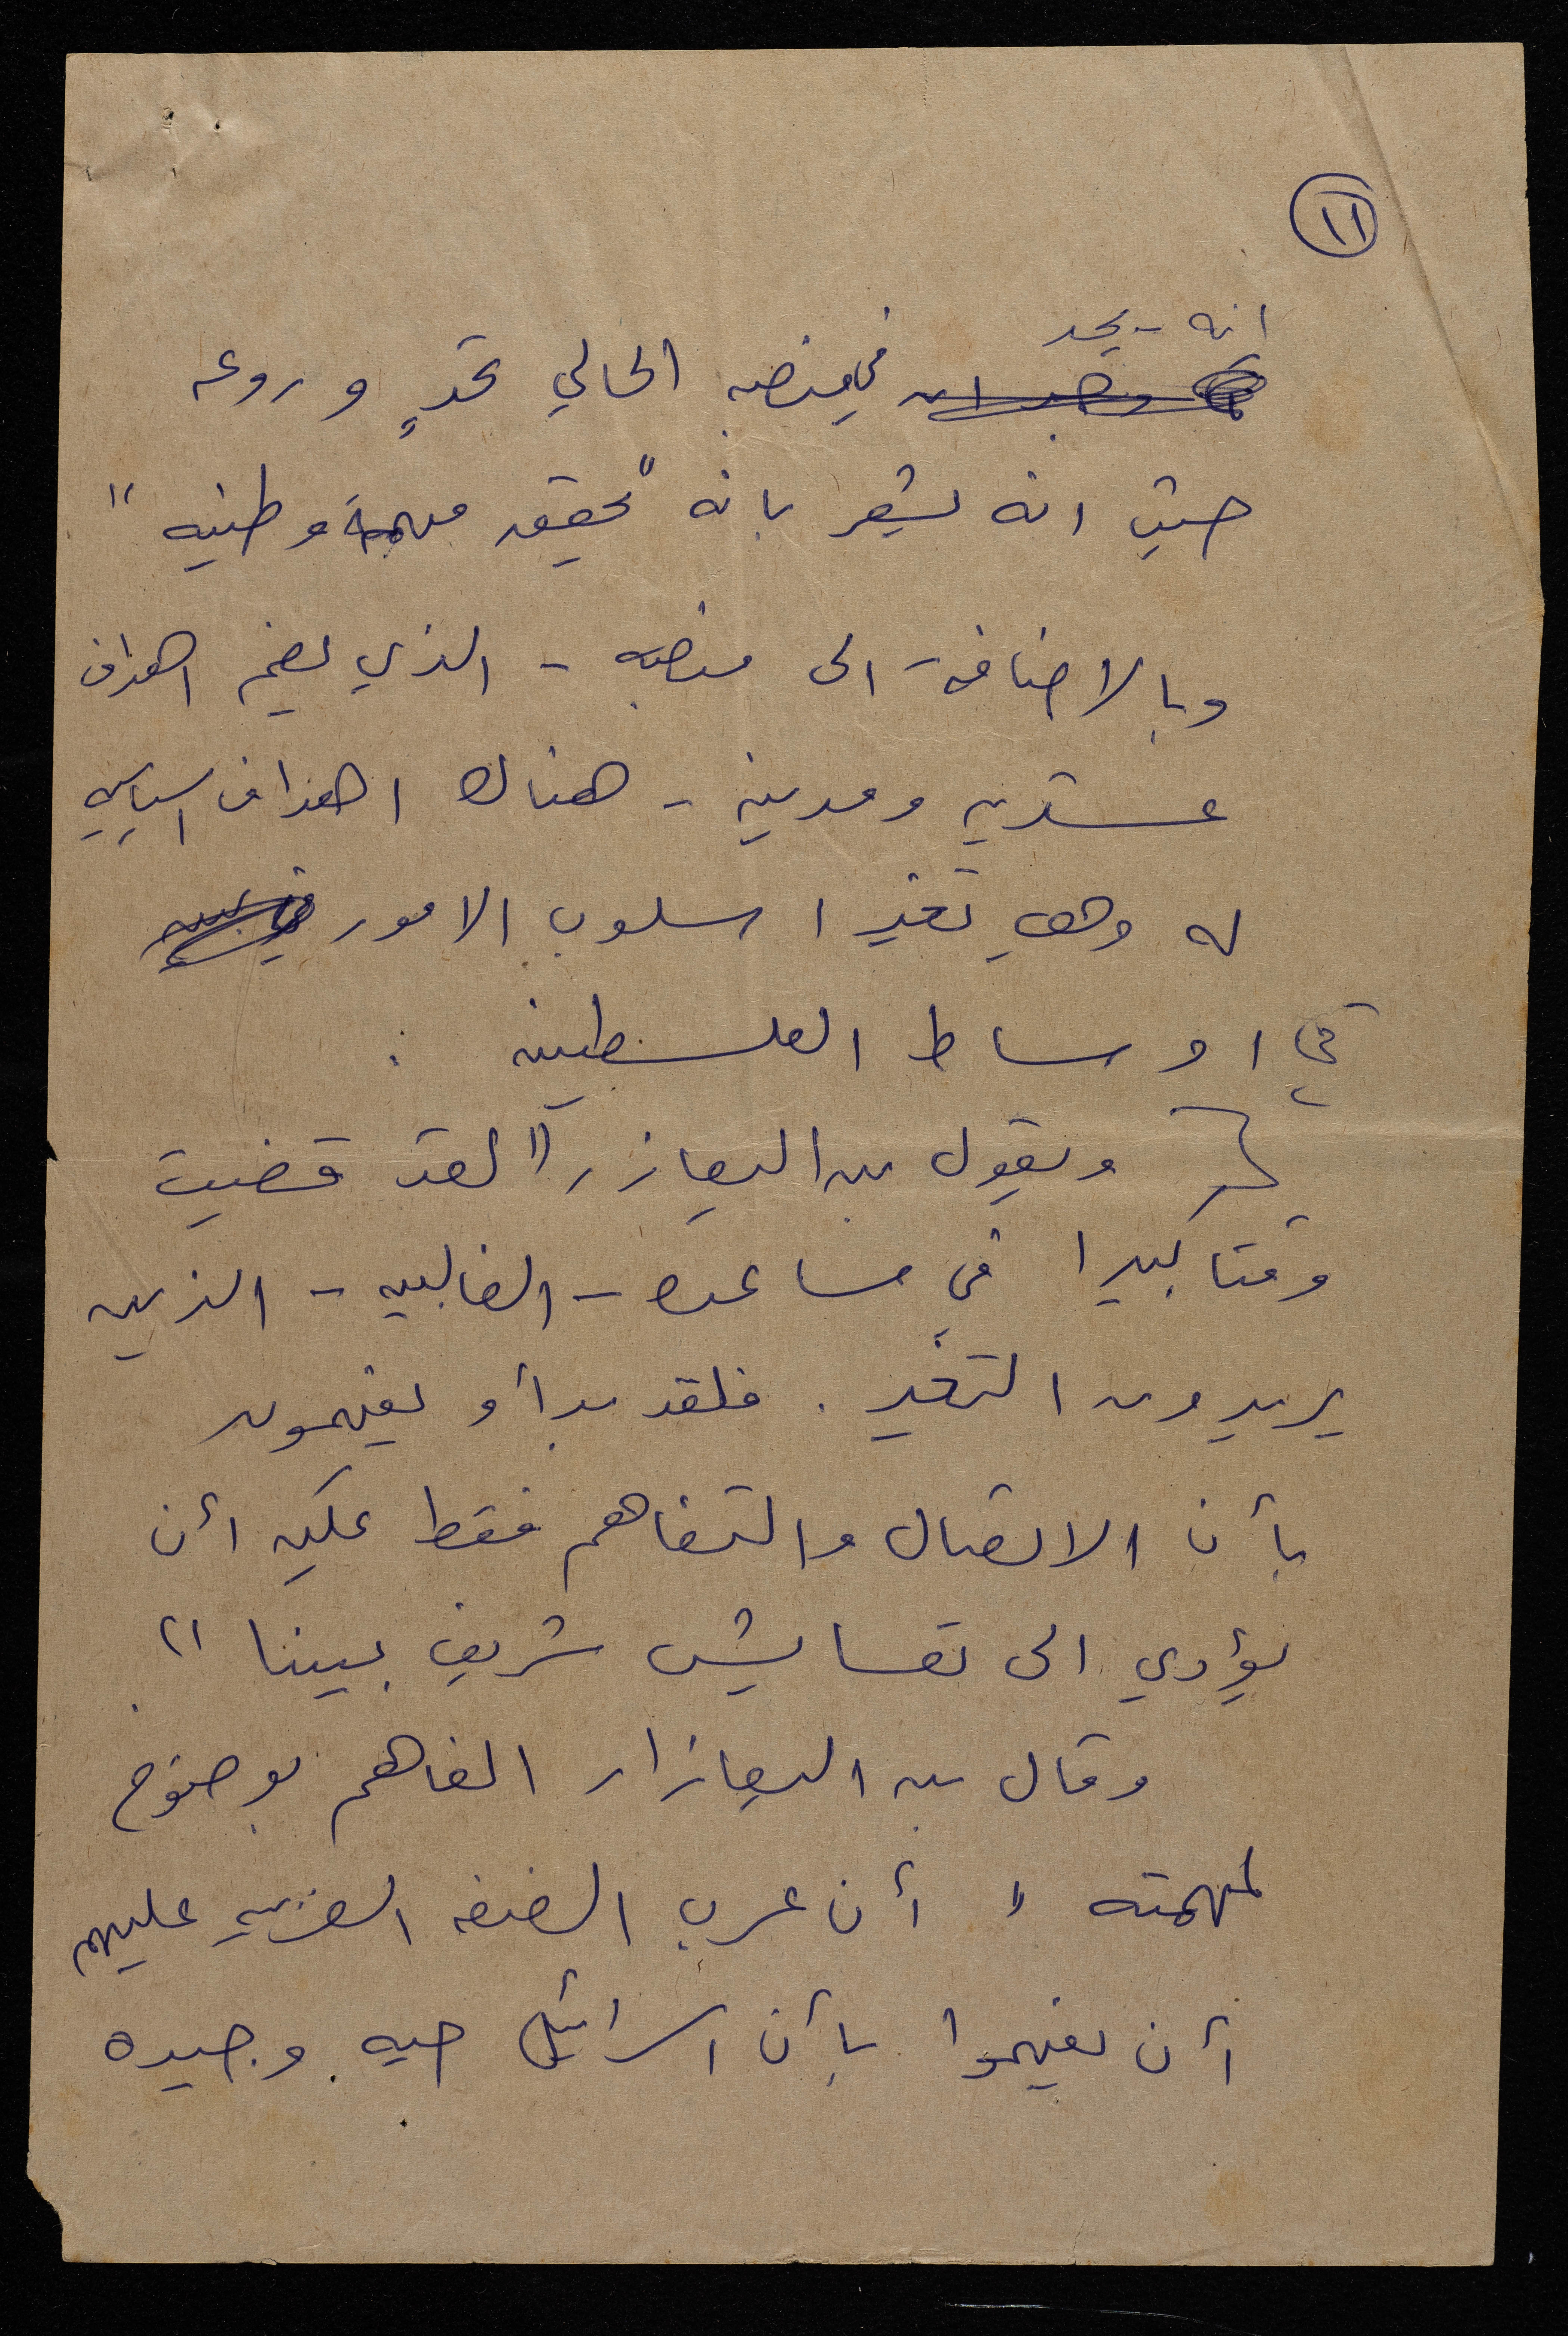 ١١
انه يجد
في منصبه الحالي تحدٍ و روعه
حتى انه يشعر بانه "يحقق مهمة وطنيه"
وبالاضافة الى منصبه - الذي يضم اهداف
عسكريه ومدنيه - هناك اهداف سياسيه
له وهي تغير اسلوب الامور
في اوساط الفلسطينيه .
ويقول بن اليعازر "لقد قضيت
وقتا كبيرا في مساعده - الغالبيه - الذين
يريدون التغير . فلقد بدأو يفهمون
بأن الاتصال والتفاهم فقط يمكن أن
يؤدي الى تعايش شريف بيننا".
وقال بن اليعازار الفاهم بوضوح
لمهمته " أن عرب الضفه الغربيه عليهم
أن يفهموا بأن اسرائيل حيه وجيده